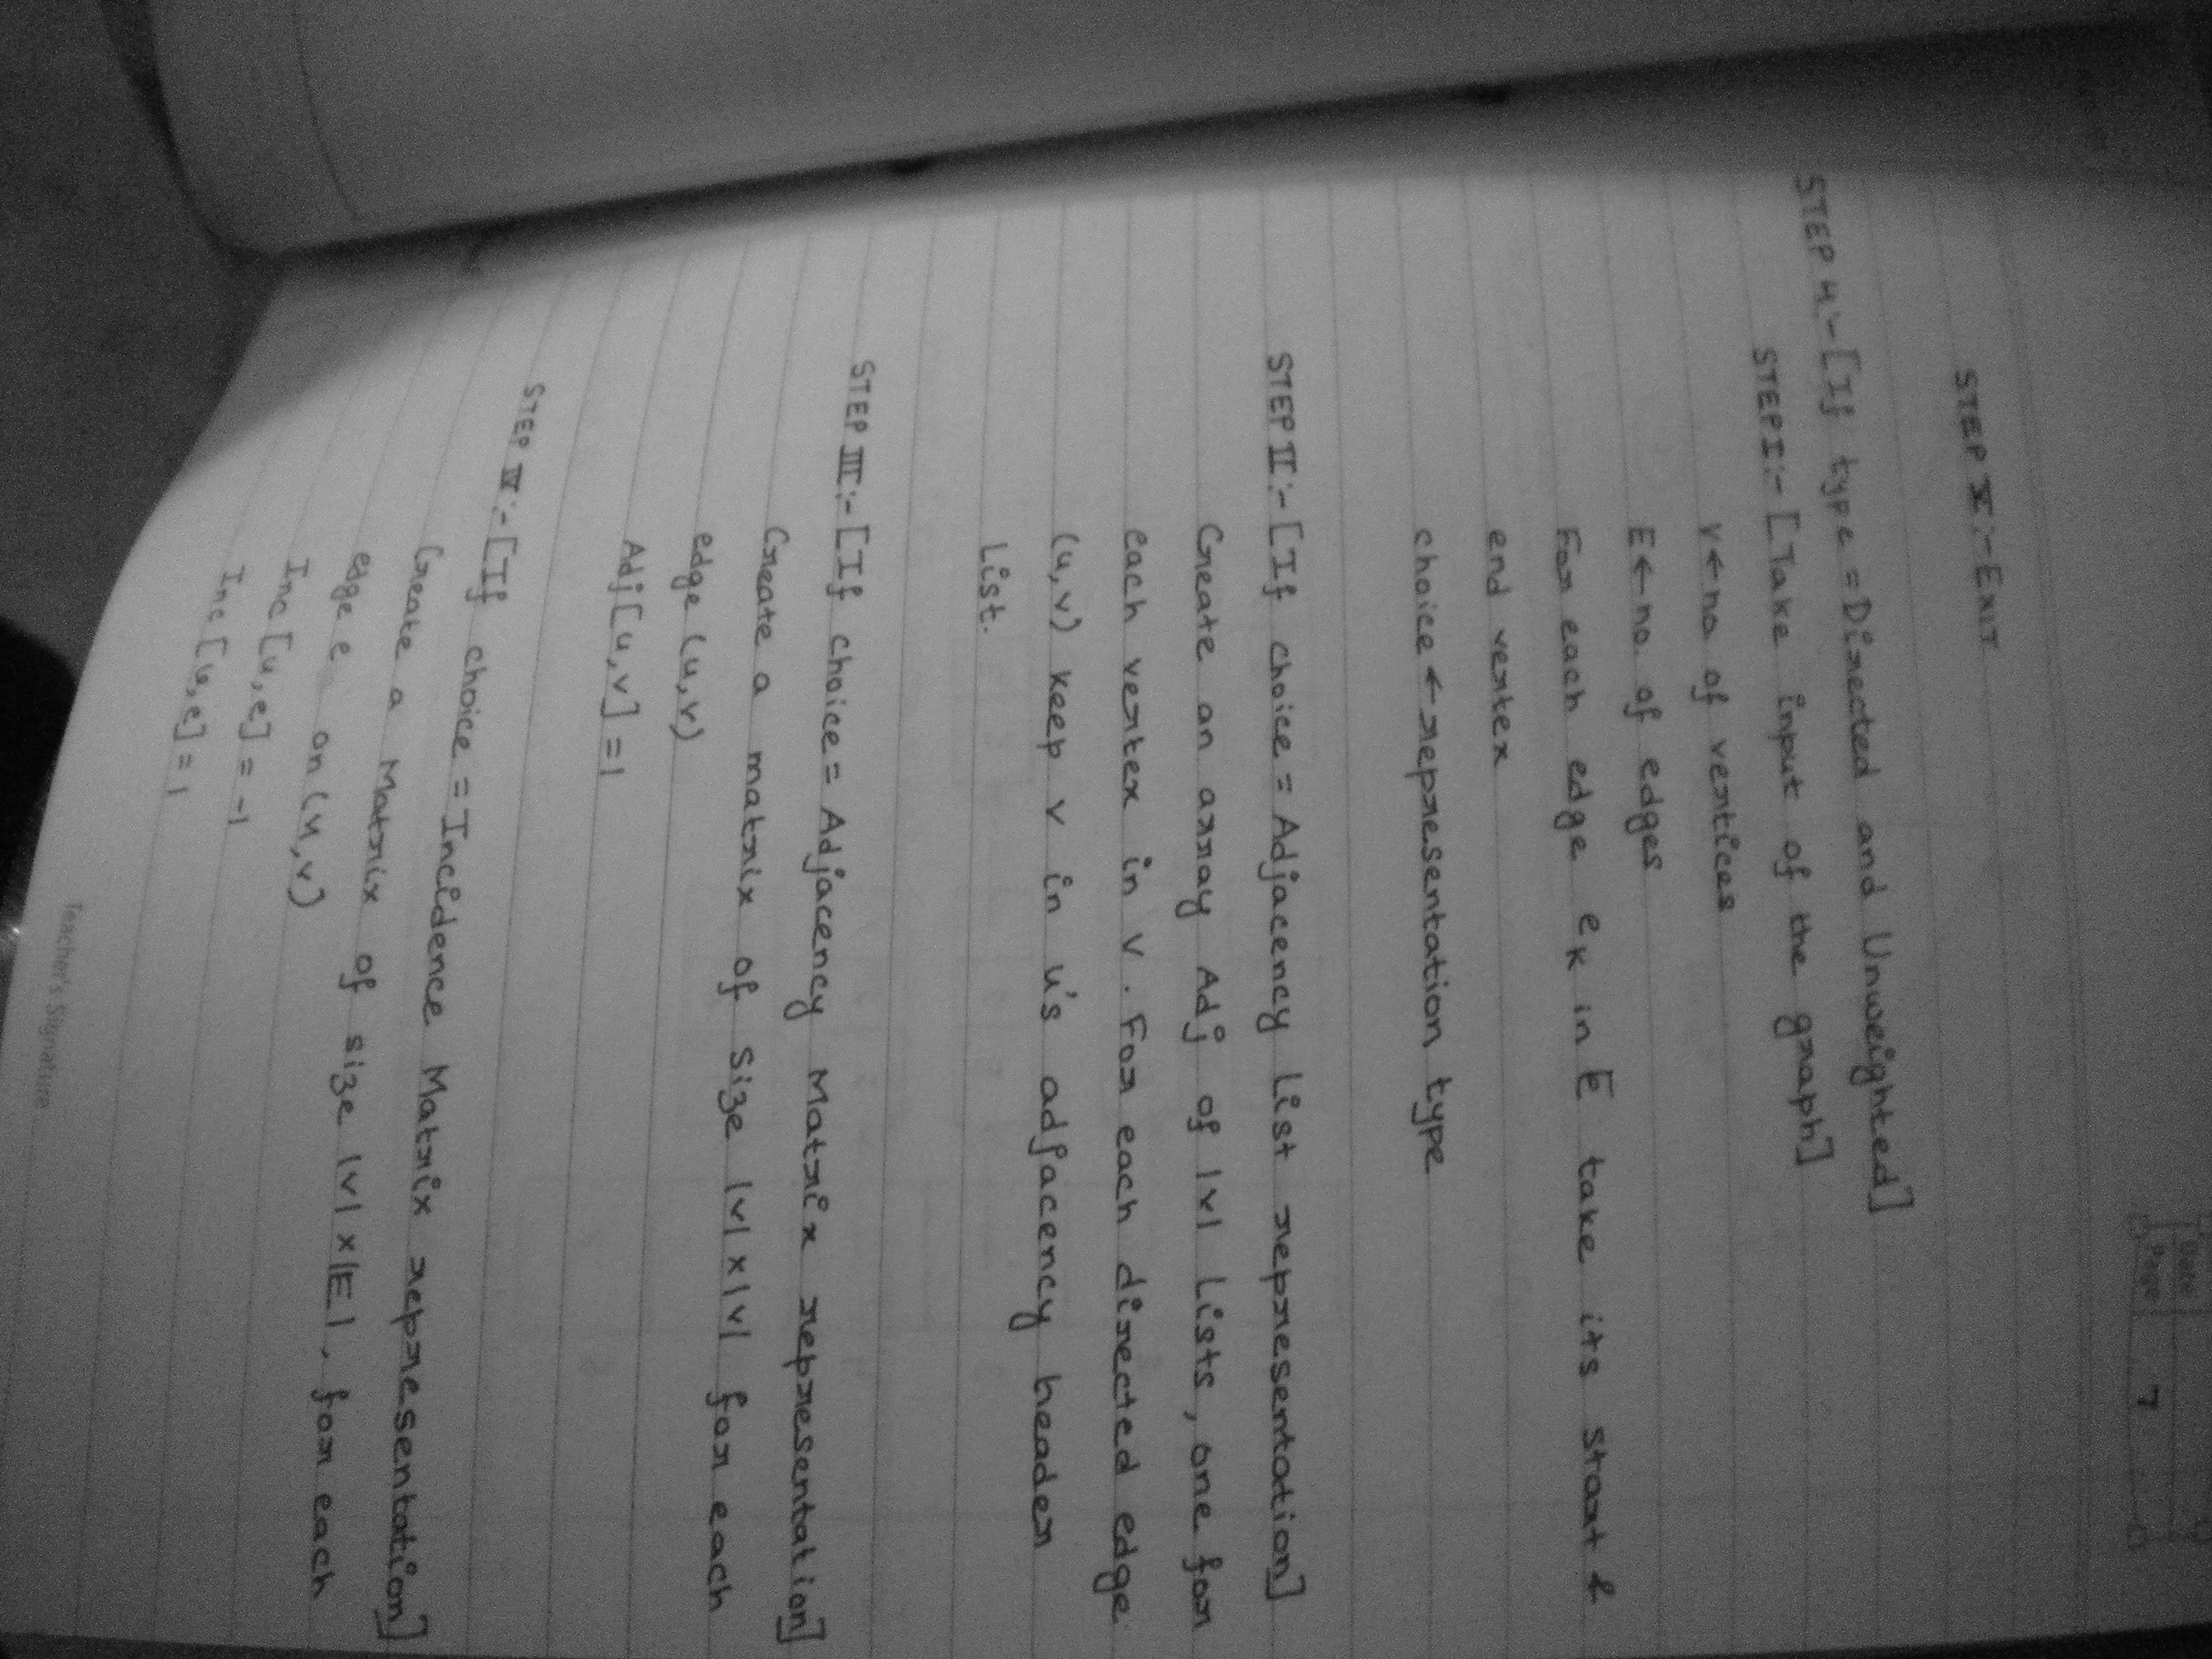 Date
Page 7
STEP V:- EXIT
STEP 4:- [If type = Directed and Unweighted]
STEP I:- [Take input of the graph]
V ← no of vertices
E ← no. of edges
For each edge eₖ in E take its start &
end vertex
choice ← representation type
STEP II:- [If choice = Adjacency List representation]
Create an array Adj of |V| Lists, one for
each vertex in V. For each directed edge
(u,v) keep v in u's adjacency header
List.
STEP III:- [If choice = Adjacency Matrix representation]
Create a matrix of size |V| x |V| for each
edge (u,v)
Adj[u,v] = 1
STEP IV:- [If choice = Incidence Matrix representation]
Create a Matrix of size |V| x |E|, for each
edge e on (u,v)
Inc[u,e] = -1
Inc[v,e] = 1
Teacher's Signature